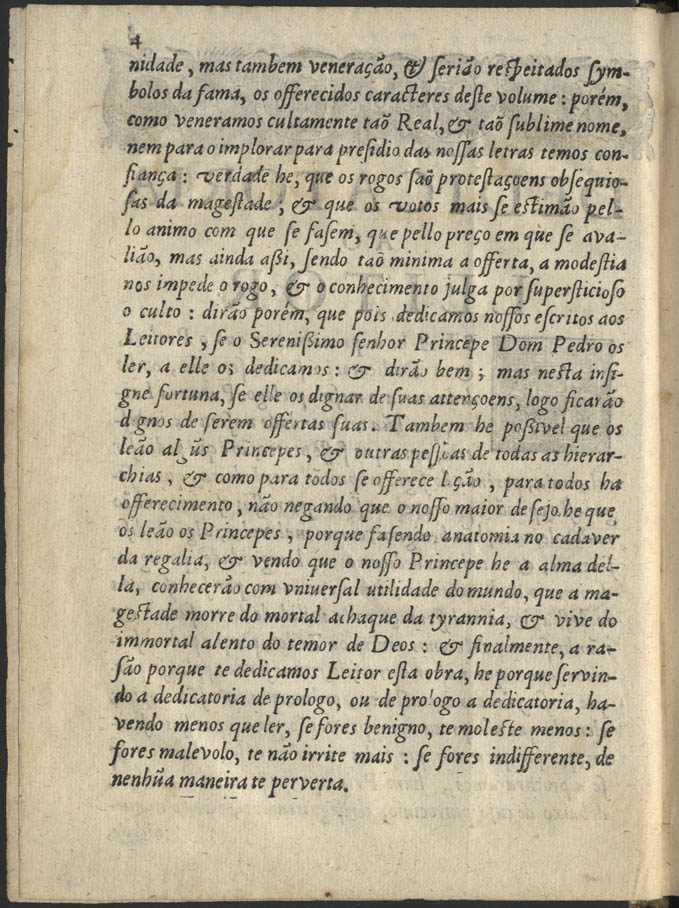 4
nidade, mas tambem veneração, & serião respeitados sym-
bolos da fama, os offerecidos caracteres deste volume: porém,
como veneramos cultamente taõ Real, & taõ sublime nome,
nem para o implorar para presidio das nossas letras temos con-
fiança: verdade he, que os rogos saõ protestaçoens obsequio-
sas da magestade; & que os votos mais se estimão pel-
lo animo com que se fasem, que pello preço em que se ava-
lião, mas ainda assi, sendo taõ minima a offerta, a modestia
nos impede o rogo, & o conhecimento julga por supersticioso
o culto: dirão porém, que pois dedicamos nossos escritos aos
Leitores, se o Serenissimo senhor Princepe Dom Pedro os
ler, a elle os dedicamos: & dirão bem; mas nesta insi-
gne fortuna, se elle os dignar de suas attençoens, logo ficarão
dignos de serem offertas suas. Tambem he possivel que os
leão algũs Princepes, & outras pessoas de todas as hierar-
chias, & como para todos se offerece lição, para todos ha
offerecimento, não negando que o nosso maior desejo he que
os leão os Princepes, porque fasendo anatomia no cadaver
da regalia, & vendo que o nosso Princepe he a alma del-
la, conhecerão com vniuersal utilidade do mundo, que a ma-
gestade morre do mortal achaque da tyrannia, & vive do
immortal alento do temor de Deos: & finalmente, a ra-
são porque te dedicamos Leitor esta obra, he porque servin-
do a dedicatoria de prologo, ou de prologo a dedicatoria, ha-
vendo menos que ler, se fores benigno, te moleste menos: se
fores malevolo, te não irrite mais: se fores indifferente, de
nenhũa maneira te perverta.